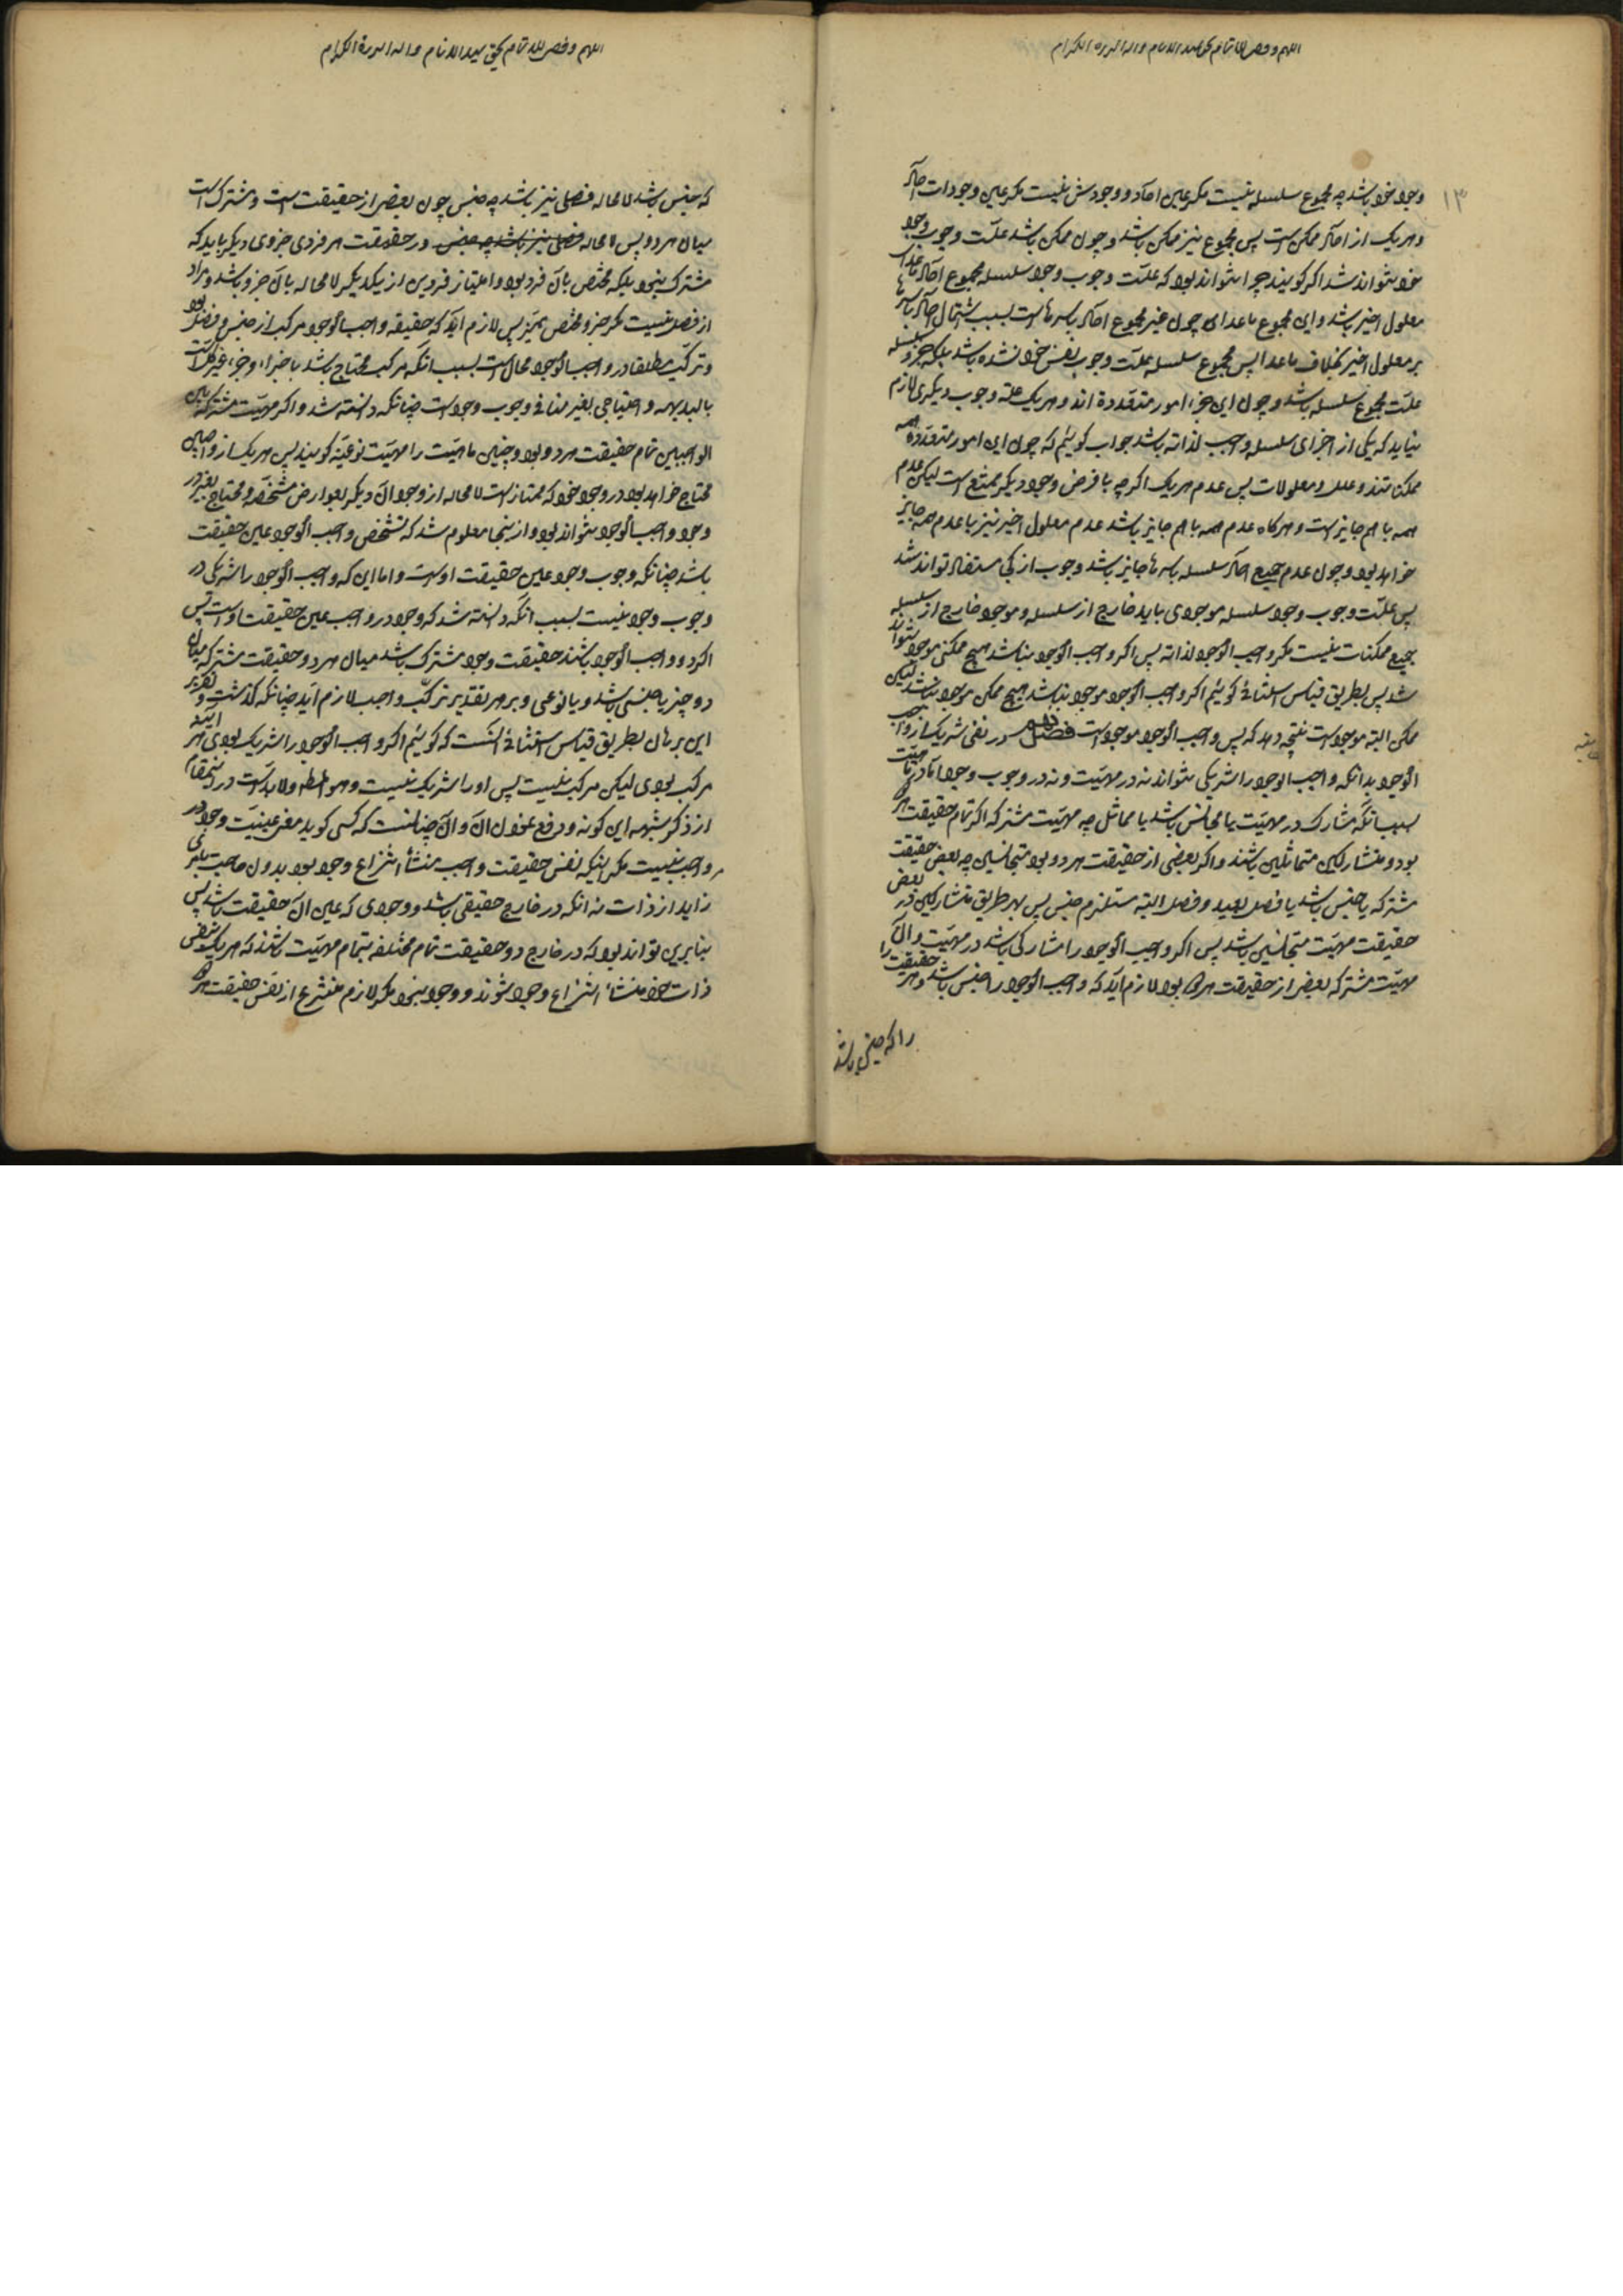 اللهم وفقنی للاتمام بحق سید الانام واله البررة الکرام
۱۳
وجود خود باشد چه مجموع سلسله نیست مکر عین احاد و وجودش نیست مکر عین وجودات احاد
و هر یک از احاد ممکن است پس مجموع نیز ممکن باشد و چون ممکن باشد علّت وجوب وجود
خود نتواند شد اکر کویند چرا نتواند بود که علّت وجوب وجود سلسله مجموع احاد ماعدای
معلول اخیر باشد و این مجموع ماعدای چون غیر مجموع احاد باسرها است بسبب اشتمال احاد باسرها
بر معلول اخیر بخلاف ماعدا پس مجموع سلسله علّت وجوب نفس خود نشده باشد بلکه جزو سلسله
علّت مجموع سلسله باشد و چون این جزء امور متعدّدة اند و هر یک علة وجوب دیکری لازم
نیاید که یکی از اجزای سلسله واجب لذاته باشد جواب کوئیم که چون این امور متعدّدة همه
ممکن‌اند و علل و معلولات پس عدم هر یک اکرچه با فرض وجود دیکر ممتنع است لیکن عدم
همه با هم جایز است و هرکاه عدم همه با هم جایز باشد عدم معلول اخیر نیز با عدم همه جایز
خواهد بود و چون عدم جمیع احاد سلسله باسرها جایز باشد وجوب از کی مستفاد تواند شد
پس علّت وجوب وجود سلسله موجودی باید خارج از سلسله و موجود خارج از سلسله
جمیع ممکنات نیست مکر واجب الوجود لذاته پس اکر واجب الوجود نباشد هیچ ممکنی موجود نتواند
شد پس بطریق قیاس استثنائی کوئیم اکر واجب الوجود موجود نباشد هیچ ممکن موجود نباشد لیکن
ممکن البته موجود است نتیجه دهد که پس واجب الوجود موجود است فصل در نفی شریک از واجب
الوجود بدانکه واجب الوجود را شریکی نتواند نه در مهیّت و نه در وجوب وجود اما در مهیّت
بسبب آنکه مشارک در مهیّت یا مجانس باشد یا مماثل چه مهیّت مشترکه اکر تمام حقیقت هر دو
بود و متشارکین متماثلین باشند و اکر بعضی از حقیقت هر دو بود متجانسین چه بعض حقیقت
مشترکه یا جنس باشد یا فصل بعید و فصل البته مستلزم جنس پس بهر طریق متشارکین در بعض
حقیقت مهیّت متجانسین باشد پس اکر واجب الوجود را مشارکی باشد در مهیّت و آن
مهیّت مشترکه بعضی از حقیقت هر دو بود لازم آید که واجب الوجود را جنس باشد و هر حقیقت را
را که جنس باشد
اللهم وفقنی للاتمام بحق سید الانام واله البررة الکرام
که جنس باشد لامحاله فصلی نیز باشد چه جنس چون بعضی از حقیقت است و مشترک است
میان هر دو پس لامحاله فصلی نیز باشد چه جنس در حقیقت هر فردی جزوی دیکر باید که
مشترک نبود بلکه مختص بآن فرد بود و امتیاز فردین از یکدیکر لامحاله بآن جزو باشد و مراد
از فصل نیست مکر جزو مختص ممیّز پس لازم آید که حقیقة واجب الوجود مرکب از جنس و فصل بود
و ترکّب مطلقا در واجب الوجود محال است بسبب آنکه مرکب محتاج باشد باجزاء و جزء غیر کل است
بالبدیهه و احتیاجی بغیر منافی وجوب وجود است چنانکه دانسته شد و اکر مهیّت مشترکه بین
الواجبین تمام حقیقت هر دو بود و چنین ماهیّت را مهیّت نوعیّه کویند پس هر یک از واجبین
محتاج خواهد بود در وجود خود که ممتاز است لامحاله از وجود آن دیکر بعوارض مشخّصه و محتاج بغیر در
وجود واجب الوجود نتواند بود و از اینجا معلوم شد که تشخّص واجب الوجود عین حقیقت
باشد چنانکه وجوب وجود عین حقیقت اوست و اما این که واجب الوجود را شریکی در
وجوب وجود نیست بسبب آنکه دانسته شد که وجود در واجب عین حقیقت اوست پس
اکر دو واجب الوجود باشند حقیقت وجود مشترک باشد میان هر دو و حقیقت مشترکه میان
دو چیز یا جنسی باشد و یا نوعی و بر هر تقدیر ترکّب واجب لازم آید چنانکه کذشت و تقریر
این برهان بطریق قیاس استثنائی آنست که کوئیم اکر واجب الوجود را شریک بودی هر آینه
مرکب بودی لیکن مرکب نیست پس او را شریک نیست و هو المط و لابد است در این مقام
از ذکر شبهه این کونه و دفع آن و آن چنانست که کسی کوید معنی عینیّت وجود در
واجب نیست مکر اینکه نفس حقیقت واجب منشأ انتزاع وجود بود بدون حاجت بامری
زاید از ذات نه آنکه در خارج حقیقی باشد و وجودی که عین آن حقیقت باشد پس
بنابرین تواند بود که در خارج دو حقیقت تمام مختلفه بتمام مهیّت باشند که هر یک بنفس
ذات خود منشأ انتزاع وجود شوند و وجود نبود مکر لازم منتزع از نفس حقیقت هر دو